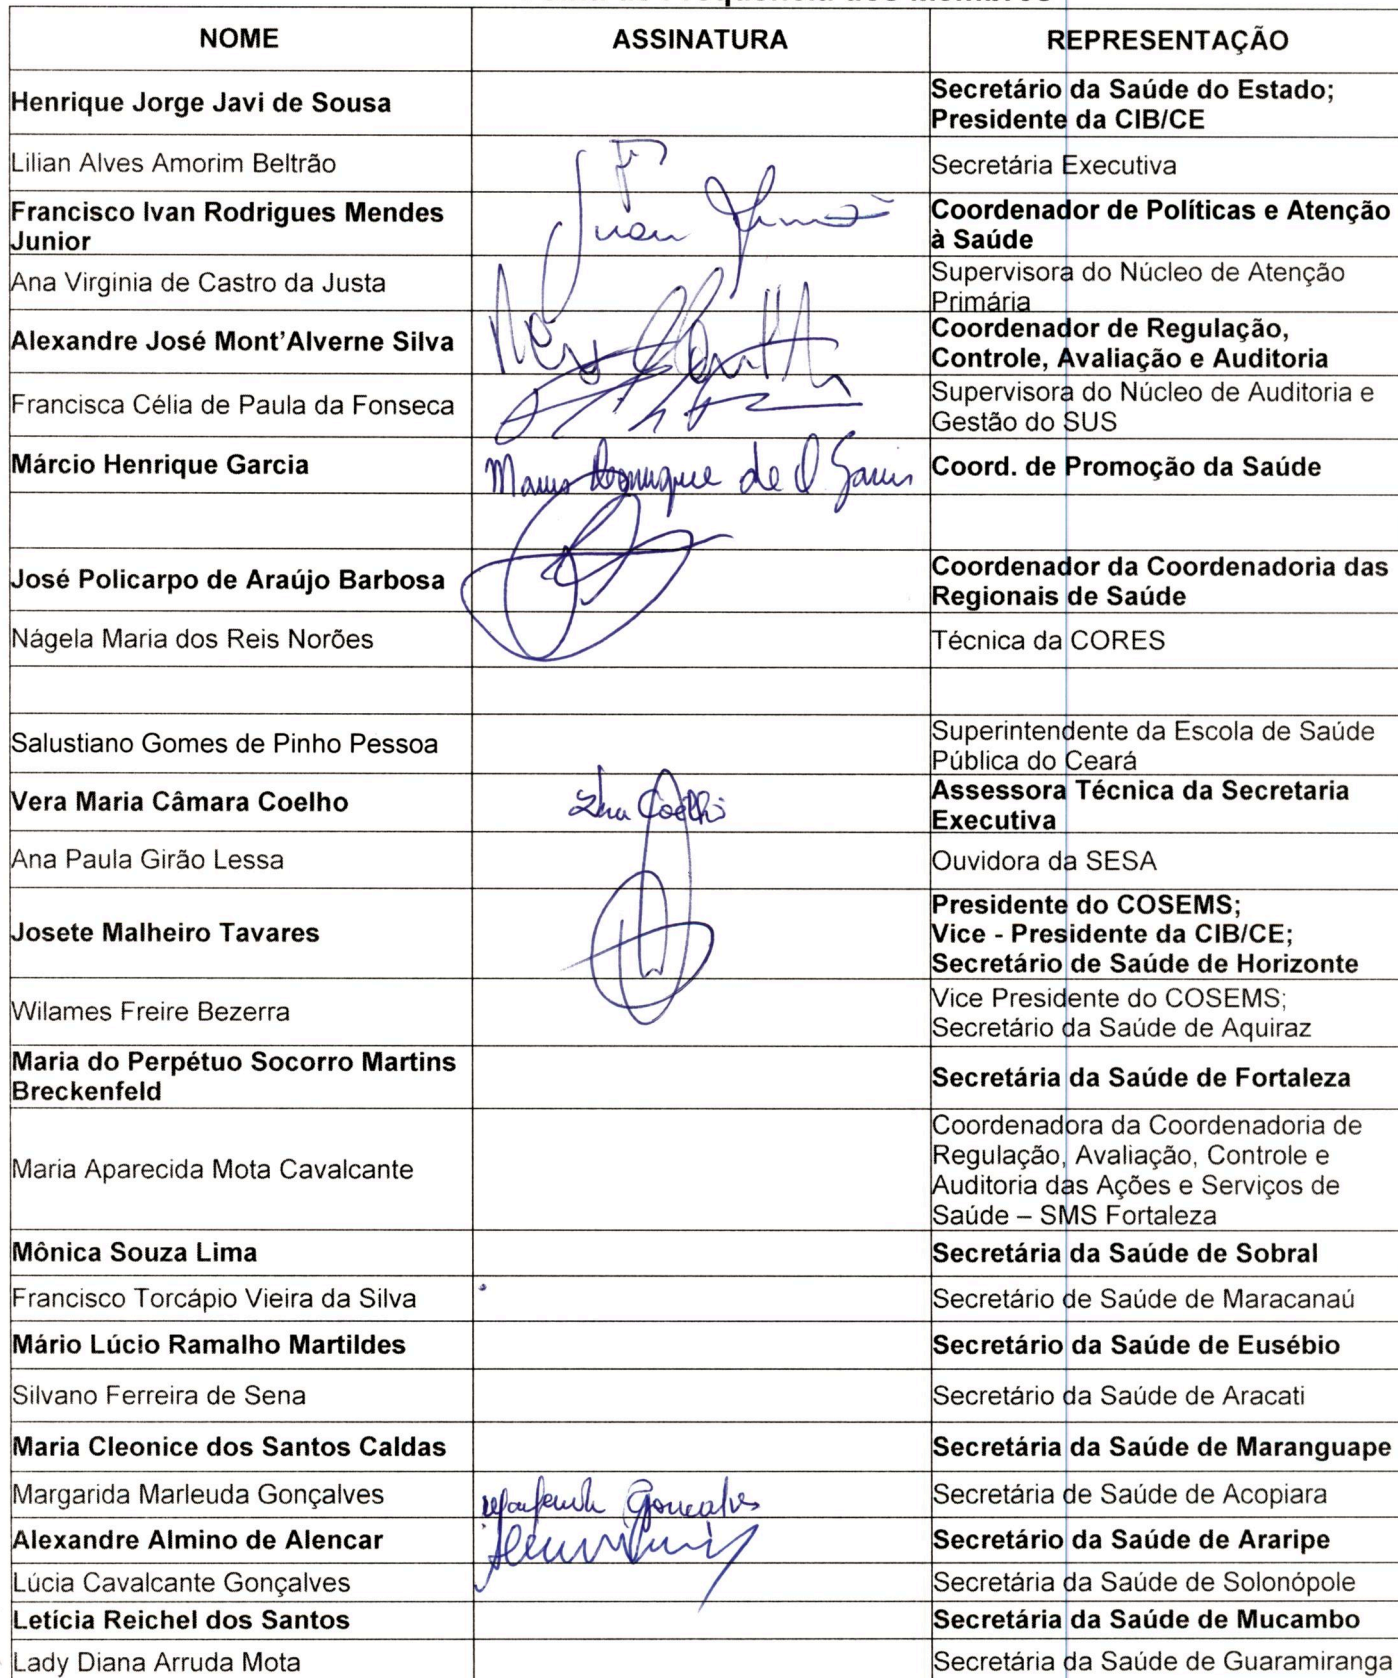 NOME
ASSINATURA
REPRESENTAÇÃO
Henrique Jorge Javi de Sousa
Secretário da Saúde do Estado;
Presidente da CIB/CE
Lilian Alves Amorim Beltrão
Secretária Executiva
Francisco Ivan Rodrigues Mendes
Junior
Coordenador de Políticas e Atenção
à Saúde
Ana Virginia de Castro da Justa
Supervisora do Núcleo de Atenção
Primária
Alexandre José Mont'Alverne Silva
Coordenador de Regulação,
Controle, Avaliação e Auditoria
Francisca Célia de Paula da Fonseca
Supervisora do Núcleo de Auditoria e
Gestão do SUS
Márcio Henrique Garcia
Coord. de Promoção da Saúde
José Policarpo de Araújo Barbosa
Coordenador da Coordenadoria das
Regionais de Saúde
Nágela Maria dos Reis Norões
Técnica da CORES
Salustiano Gomes de Pinho Pessoa
Superintendente da Escola de Saúde
Pública do Ceará
Vera Maria Câmara Coelho
Coelho
Assessora Técnica da Secretaria
Executiva
Ana Paula Girão Lessa
Ouvidora da SESA
Josete Malheiro Tavares
Presidente do COSEMS;
Vice - Presidente da CIB/CE;
Secretário de Saúde de Horizonte
Wilames Freire Bezerra
Vice Presidente do COSEMS;
Secretário da Saúde de Aquiraz
Maria do Perpétuo Socorro Martins
Breckenfeld
Secretária da Saúde de Fortaleza
Maria Aparecida Mota Cavalcante
Coordenadora da Coordenadoria de
Regulação, Avaliação, Controle e
Auditoria das Ações e Serviços de
Saúde – SMS Fortaleza
Mônica Souza Lima
Secretária da Saúde de Sobral
Francisco Torcápio Vieira da Silva
Secretário de Saúde de Maracanaú
Mário Lúcio Ramalho Martildes
Secretário da Saúde de Eusébio
Silvano Ferreira de Sena
Secretário da Saúde de Aracati
Maria Cleonice dos Santos Caldas
Secretária da Saúde de Maranguape
Margarida Marleuda Gonçalves
Gonçalves
Secretária de Saúde de Acopiara
Alexandre Almino de Alencar
Secretário da Saúde de Araripe
Lúcia Cavalcante Gonçalves
Secretária da Saúde de Solonópole
Letícia Reichel dos Santos
Secretária da Saúde de Mucambo
Lady Diana Arruda Mota
Secretária da Saúde de Guaramiranga